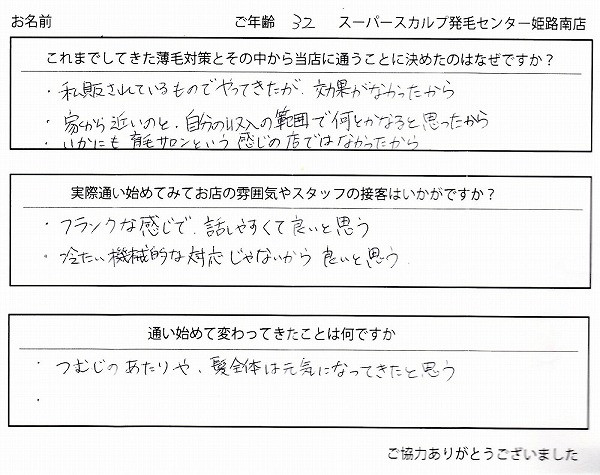 お名前 ご年齢 32 スーパースカルプ発毛センター姫路南店
これまでしてきた薄毛対策とその中から当店に通うことに決めたのはなぜですか？
・私販されているものでやってきたが、効果がなかったから
・家から近いのと、自分の収入の範囲で何とかなると思ったから
・いかにも育毛サロンという感じの店ではなかったから
実際通い始めてみてお店の雰囲気やスタッフの接客はいかがですか？
・フランクな感じで、話しやすくて良いと思う
・冷たい機械的な対応じゃないから良いと思う.
通い始めて変わってきたことは何ですか
・つむじのあたりや、髪全体は元気になってきたと思う
・
ご協力ありがとうございました